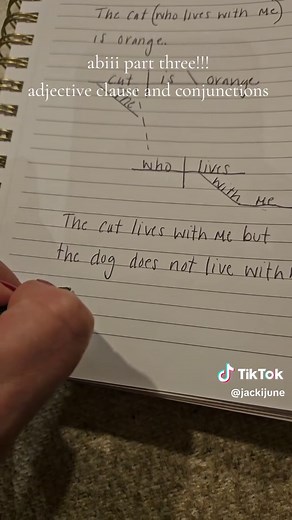 The cat (who lives with me)
is orange.
abiii part three!!!
adjective clause and conjunctions
cat is orange
The
who lives
with me
The cat lives with me but
the dog does not live with
TikTok
@jackijune